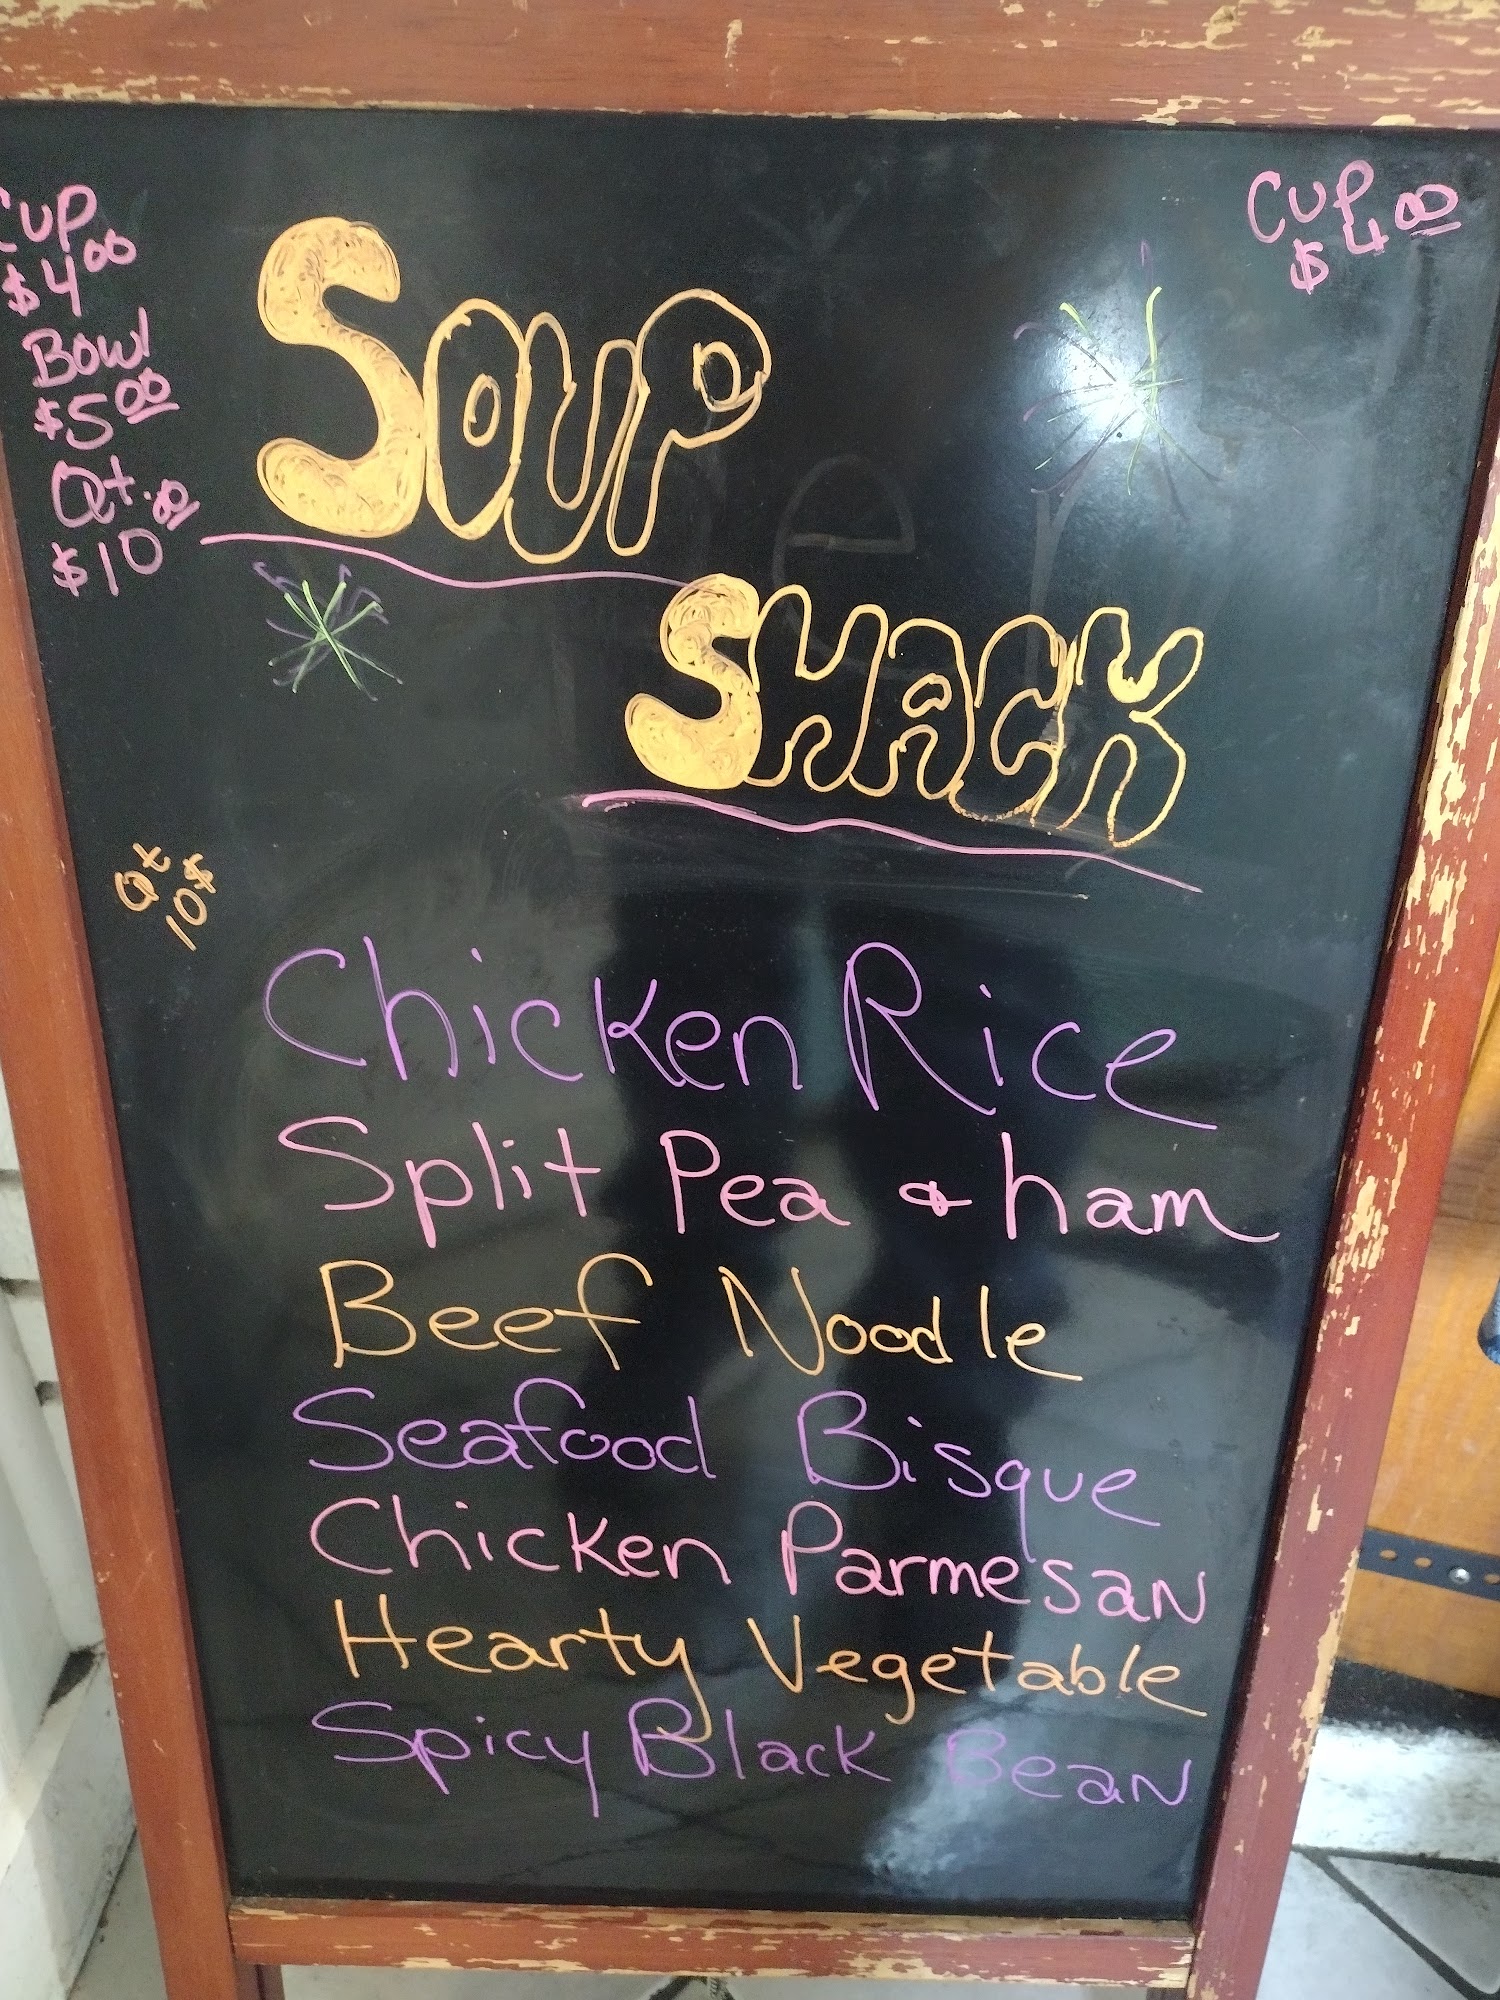 Cup
$4.00
Bowl
$5.00
Qt.
$10
Cup
$4.00
Soup
SHACK
Qt
10$
Chicken Rice
Split Pea & ham
Beef Noodle
Seafood Bisque
Chicken Parmesan
Hearty Vegetable
Spicy Black Bean